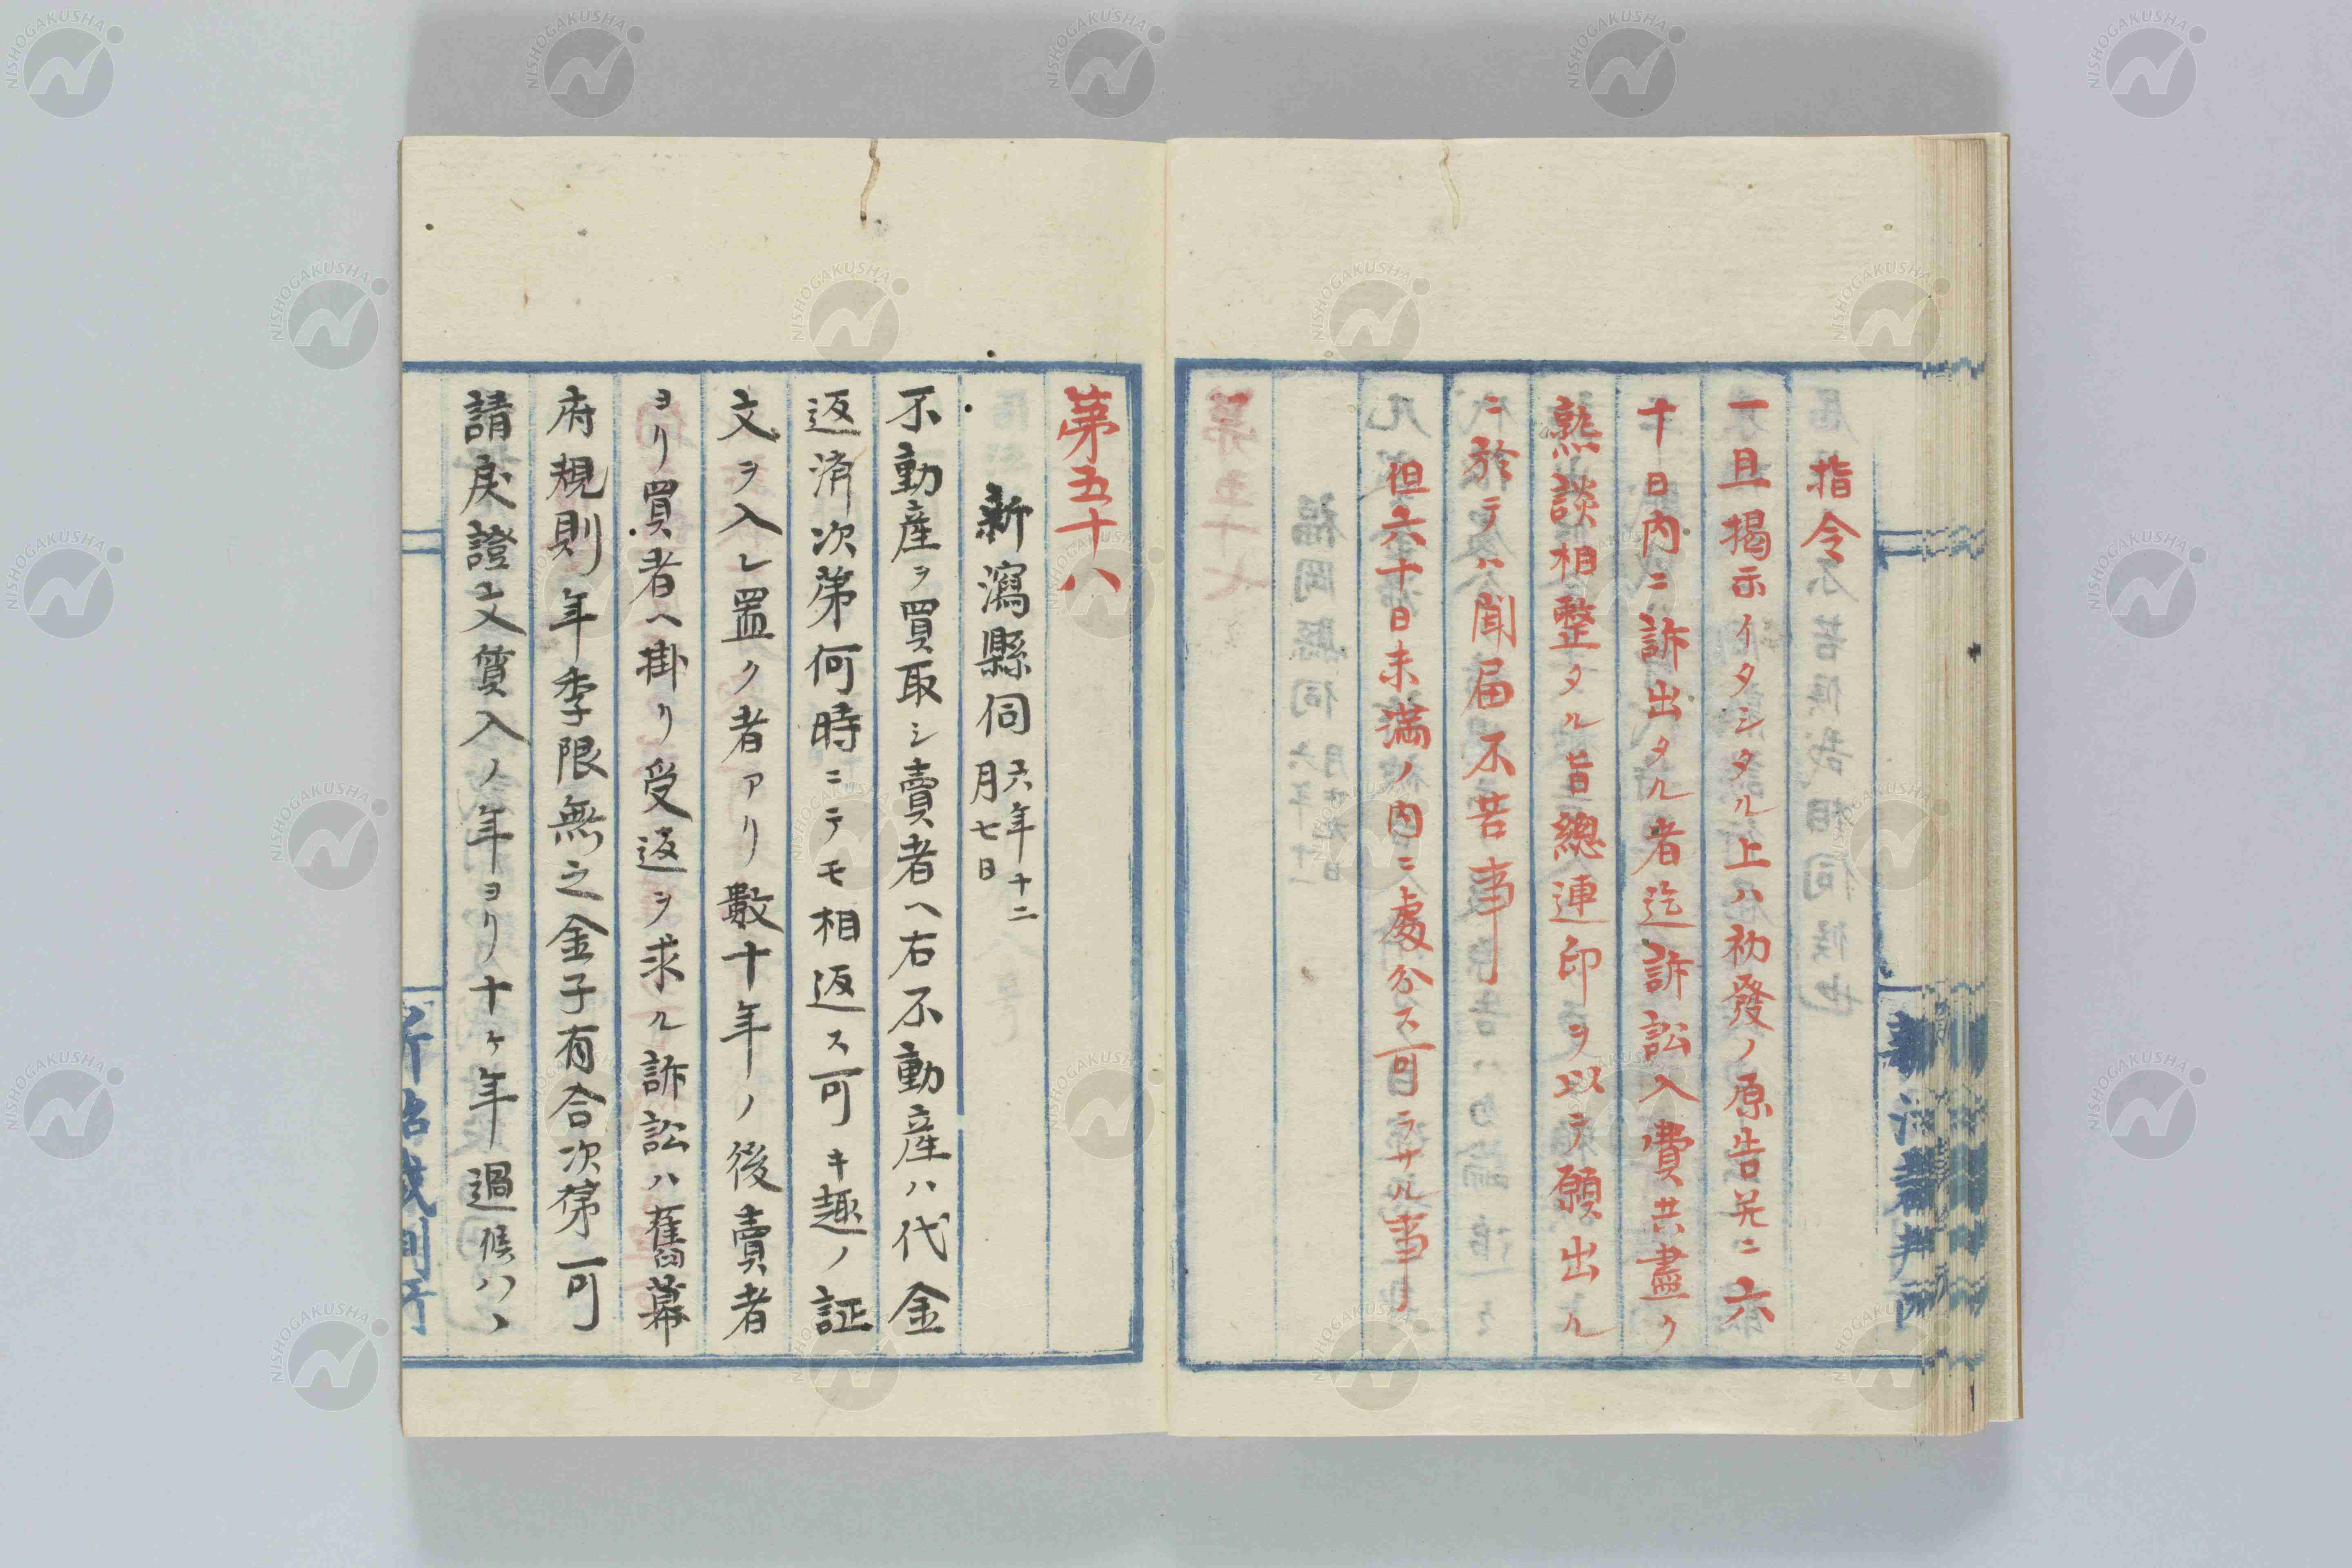 指令
一旦揭示イタシタル上ハ初發ノ原告並ニ六
十日内ニ訴出タル者迄訴訟入費共盡ク
熟談相整タル旨總連印ヲ以テ願出ル
ニ於テハ聞届不苦事
但六十日未満ノ内ニ處分ス可ラサル事
第五十八
新瀉縣伺 六年十二
月七日
不動産ヲ買取シ賣者ヘ右不動産ハ代金
返済次第何時ニテモ相返ス可キ趣ノ証
文ヲ入レ置ク者アリ數十年ノ後賣者
ヨリ買者ヘ掛リ受返ヲ求ル訴訟ハ舊幕
府規則年季限無之金子有合次第可
請戻證文質入ノ年ヨリ十ヶ年過候ハヽ
NISHOGAKUSHA